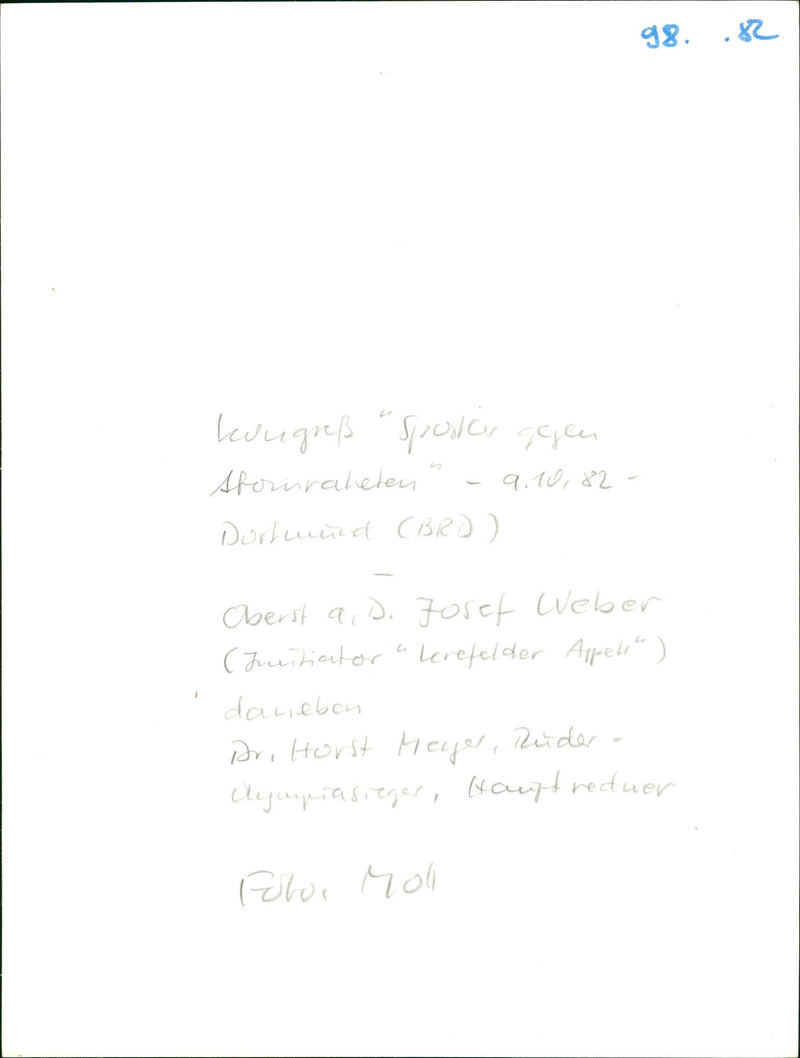 98. .82
Kongreß "Sportler gegen
Atomraketen" - 9.10.82 -
Dortmund (BRD)
—
Oberst a.D. Josef Weber
(Initiator "Krefelder Appell")
daneben
Dr. Horst Meyer, Ruder-
Olympiasieger, Hauptredner
Foto: Moll